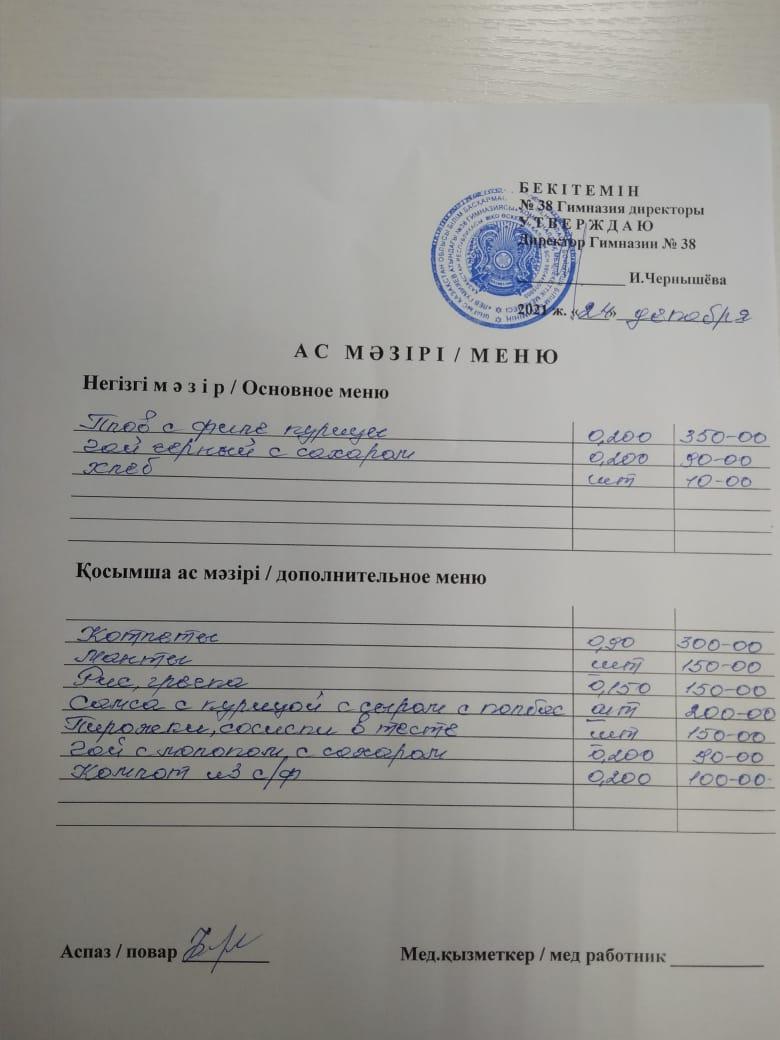 Б Е К І Т Е М І Н
№ 38 Гимназия директоры
У Т В Е Р Ж Д А Ю
Директор Гимназии № 38
__________ И.Чернышёва
2021 ж. «24» декабря
АС МӘЗІРІ / МЕНЮ
Негізгі м ә з і р / Основное меню
Плов с филе курицы 0,200 350-00
Чай черный с сахаром 0,200 90-00
Хлеб шт 10-00
Қосымша ас мәзірі / дополнительное меню
Котлеты 0,90 300-00
Манты шт 150-00
Рис, гречка 0,150 150-00
Самса с курицой с сыром с колбас шт 200-00
Пирожки, сосиски в тесте шт 150-00
Чай с молоком, с сахаром 0,200 90-00
Компот из с/ф 0,200 100-00
Аспаз / повар
Мед.қызметкер / мед работник __________